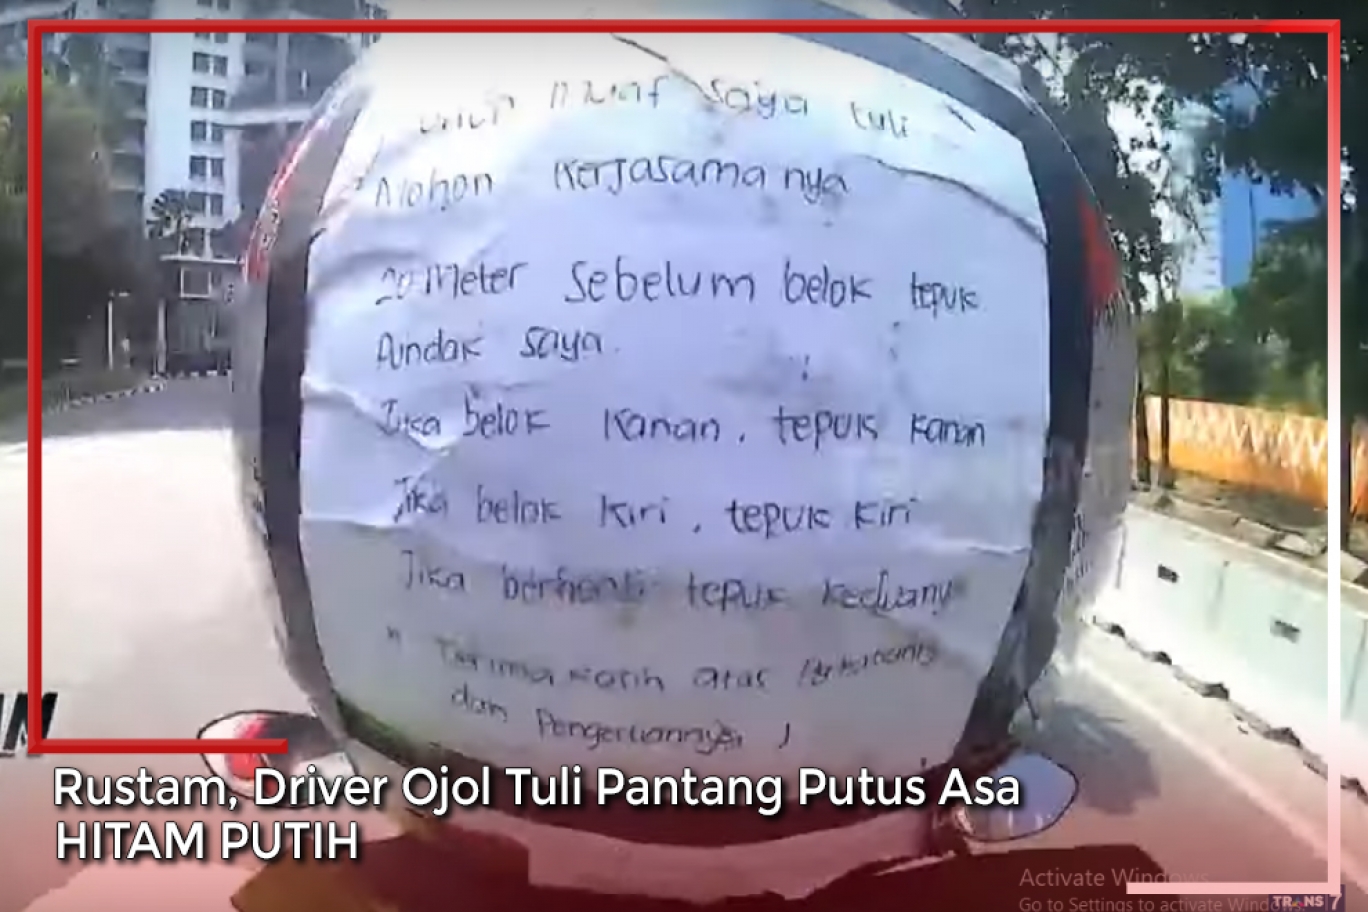 maaf saya tuli
Mohon Kerjasamanya
20 Meter Sebelum belok tepuk
Pundak saya.
Jika belok Kanan, tepuk Kanan
Jika belok Kiri, tepuk Kiri
Jika berhenti tepuk keduanya
" Terima Kasih atas
dan Pengertiannya
Rustam, Driver Ojol Tuli Pantang Putus Asa
HITAM PUTIH
Activate Windows
Go to Settings to activate Windows
TRANS 7